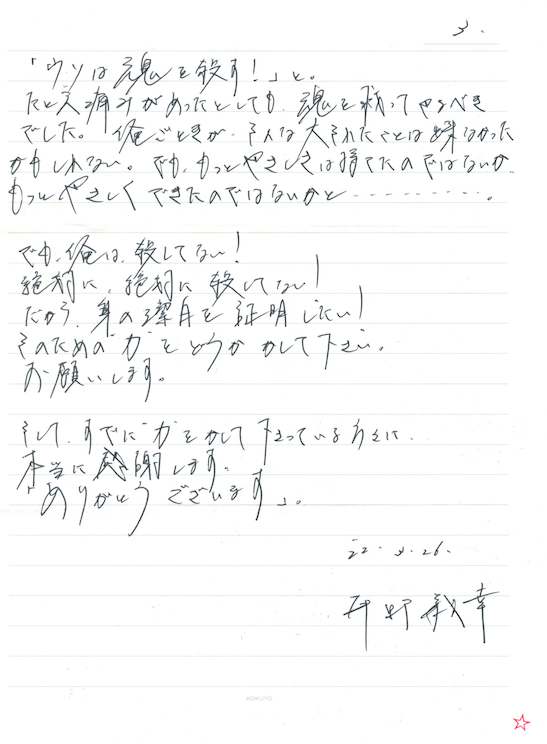 3.
「ウソは魂を殺す!」と。
たとえ痛みがあったとしても、魂を救ってやるべき
でした。俺ごときが、そんな大それたことは出来なかった
かもしれない。でも、もっとやさしさは持てたのではないか、
もっとやさしくできたのではないかと----------。
でも、俺は、殺してない!
絶対に、絶対に殺してない!
だから、身の潔白を証明したい!
そのための"力"をどうかかして下さい。
お願いします。
そして、すでに"力"をかして下さっている方々に、
本当に感謝します。
「ありがとうございます」。
22.3.26.
幸
KOKUYO